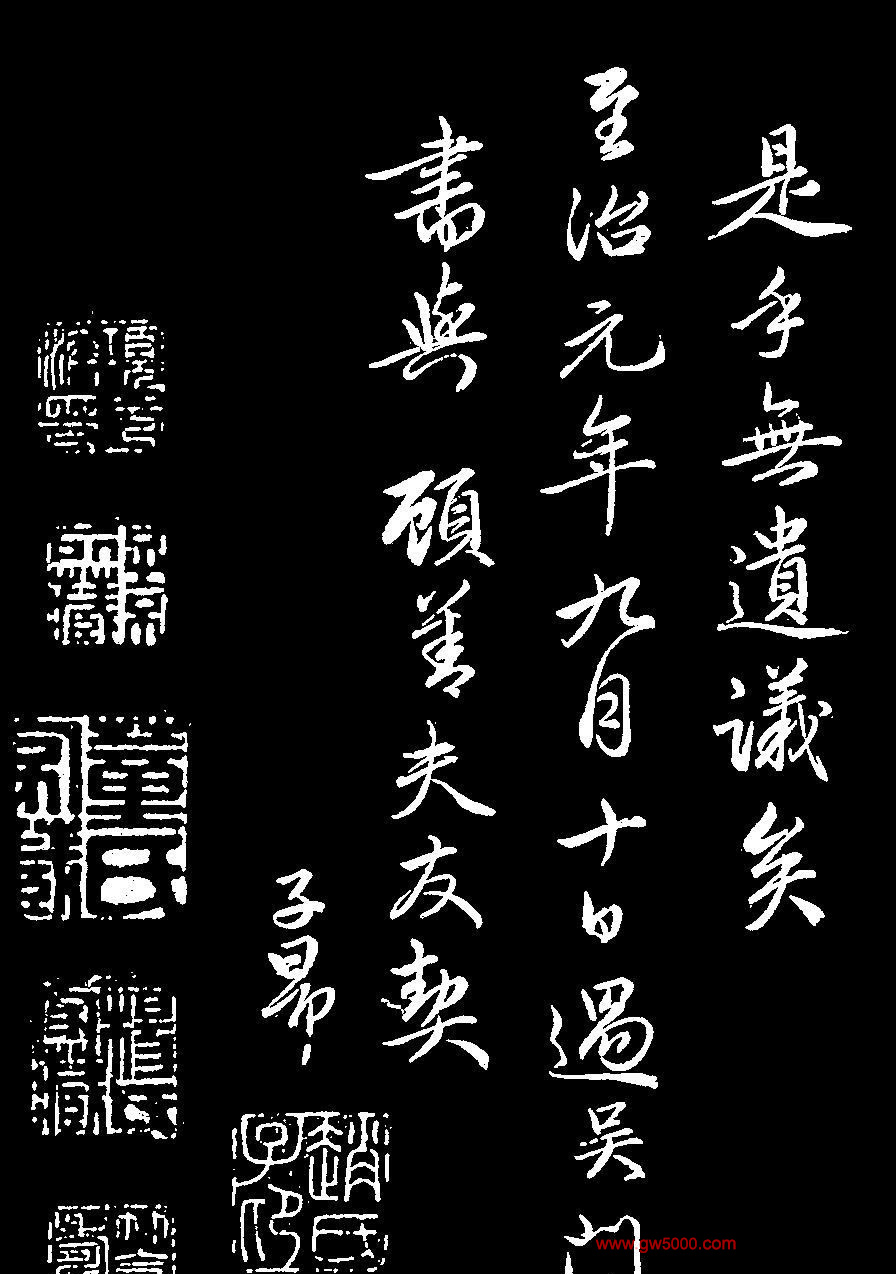 是乎無遺議矣
至治元年九月十日過吳門
書與 顧善夫友契
子昂
趙氏子印
董氏
www.gw5000.com